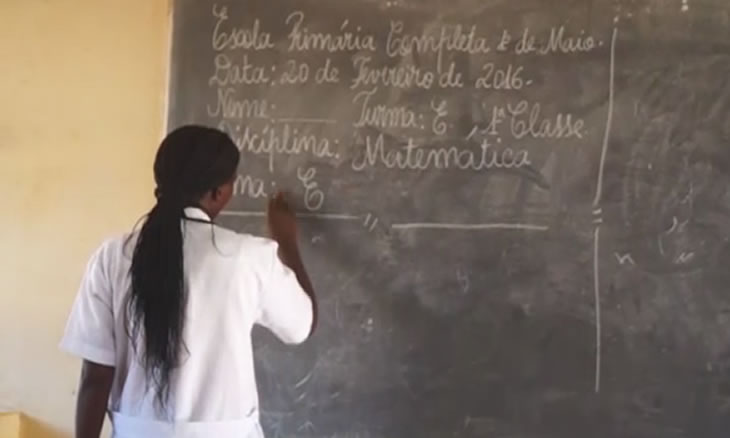 Escola Primária Completa 1º de Maio.
Data: 20 de Fevereiro de 2016.
Nome: ______ Turma: E, 1ª Classe.
Disciplina: Matematica
E